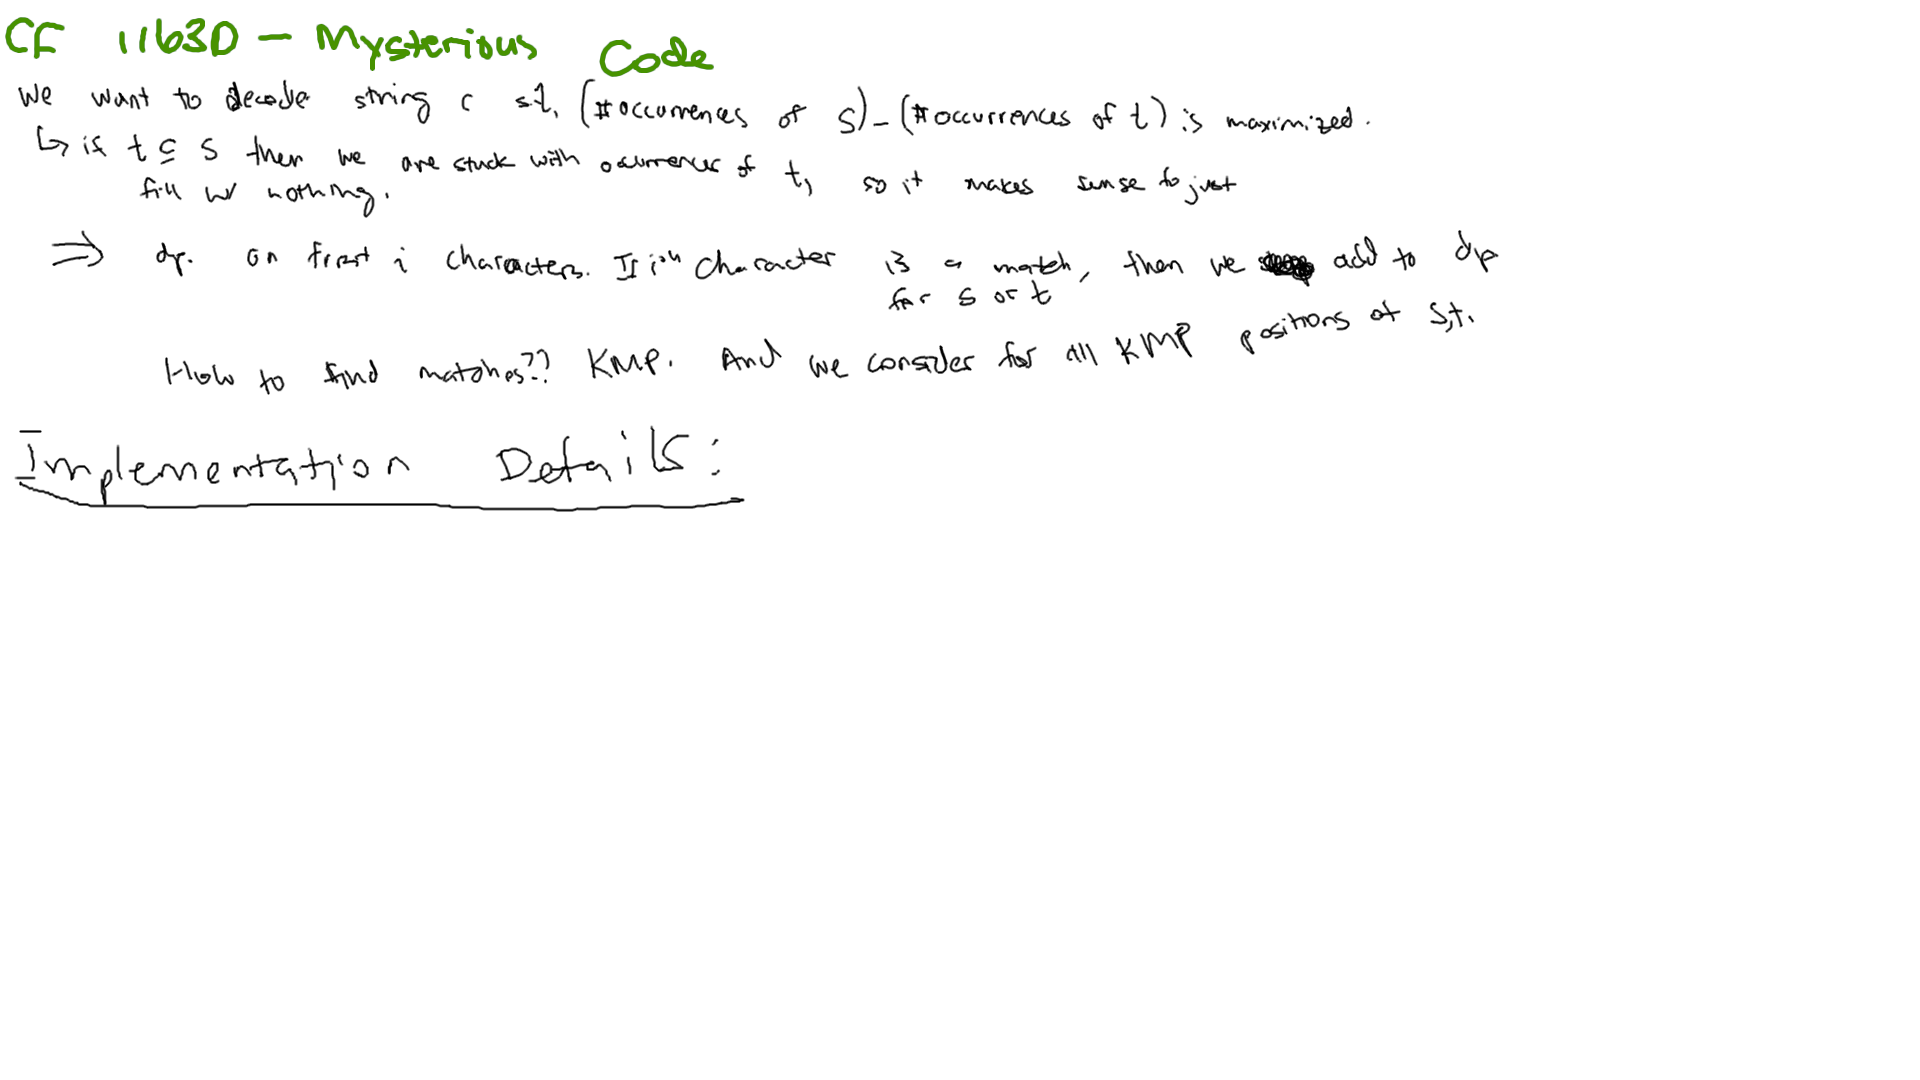 CF 1163D - Mysterious Code
We want to decode string c s.t. (# occurrences of s) - (# occurrences of t) is maximized.
↳ if t ⊆ s then we are stuck with occurrences of t, so it makes sense to just
fill w/ nothing.
⇒ dp. on first i characters. If ith character is a match, then we add to dp
for s or t
How to find matches?? KMP. And we consider for all KMP positions of s,t.
Implementation Details: